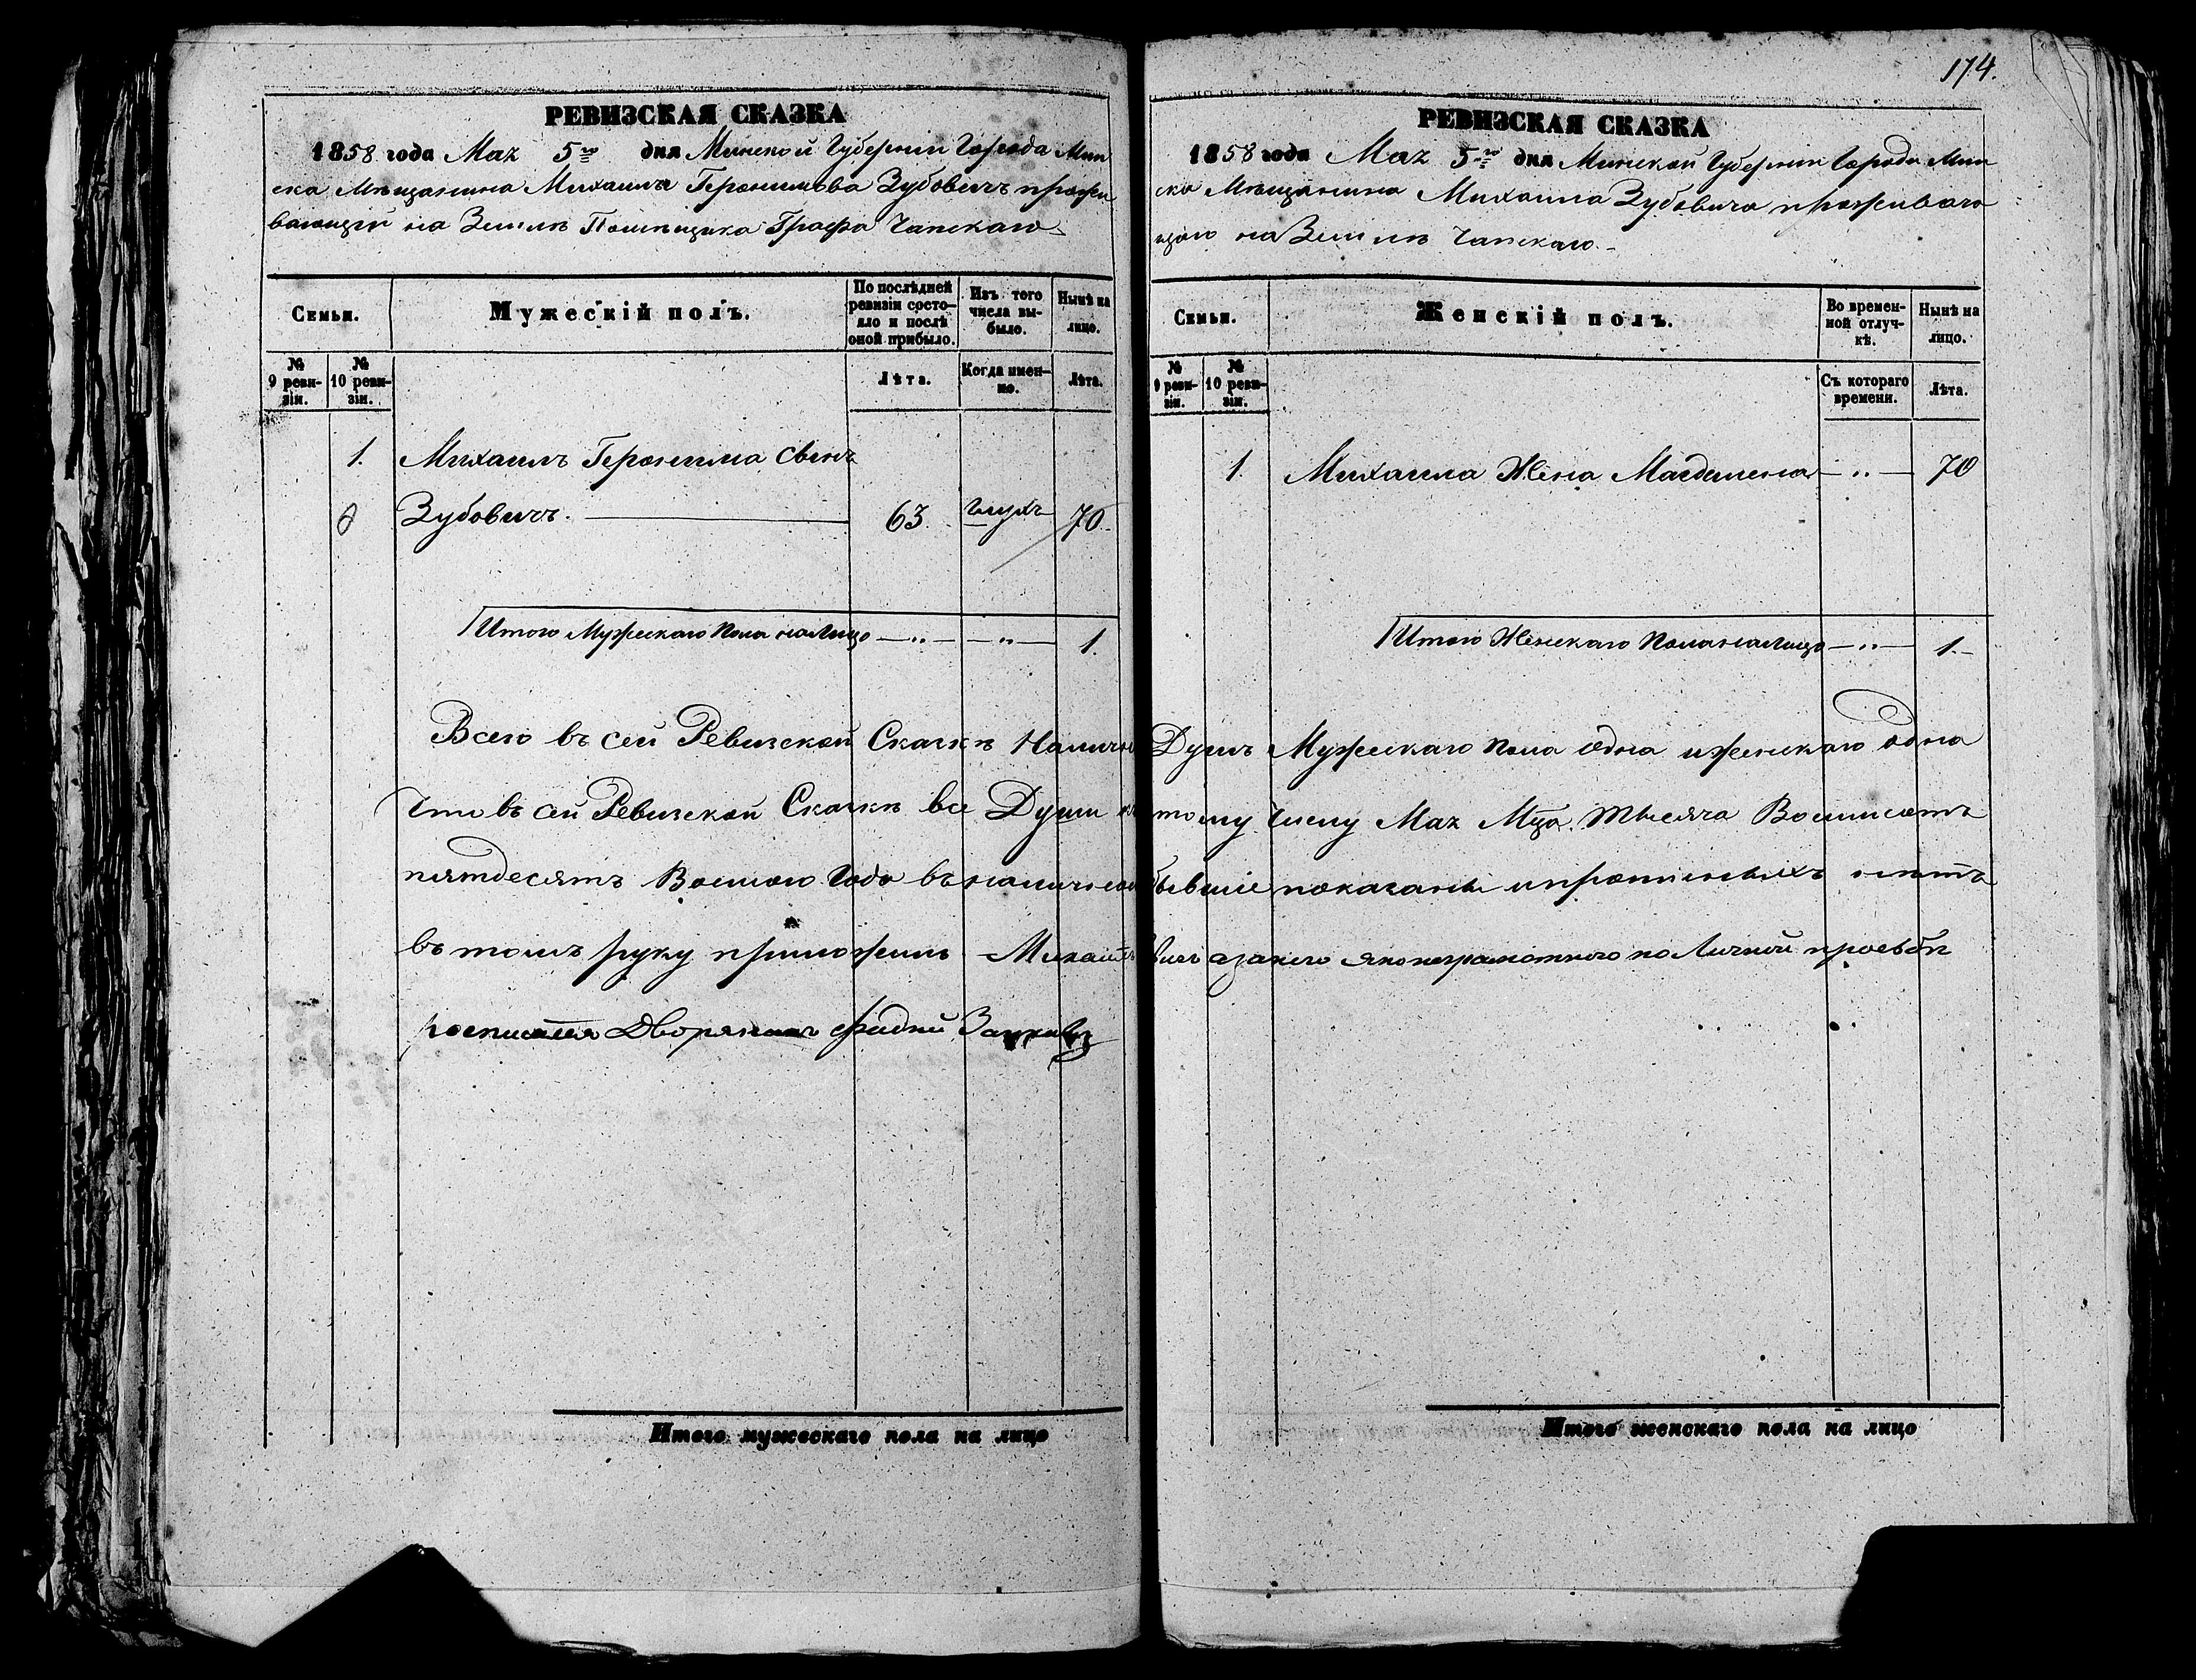 РЕВИЗСКАЯ СКАЗКА
1858 года Мая 5го дня Минской Губерніи Города Мин
ска Мѣщанина Михаила Геронимова Зубовичъ прожи
вающій на Землѣ Помѣщика Графа Чапскаго
Семьи.
Мужескій полъ.
По послѣдней ревизіи состо-
яло и послѣ оной прибыло.
Изъ того числа вы-
было.
Нынѣ на лицо.
№ 9 реви-
зіи.
№ 10 реви-
зіи.
Лѣта.
Когда имен-
но.
Лѣта.
1. Михаилъ Геронима Сынъ
Зубовичъ. 63. 70.
Итого Мужескаго Пола на Лицо — „ — — „ — 1.
Итого мужескаго пола на лицо
174.
РЕВИЗСКАЯ СКАЗКА
1858 года Мая 5го дня Минской Губерніи Города Мин
ска Мѣщанина Михаила Зубовича проживаю
щаго на Землѣ Чапскаго.
Семьи.
Женскій полъ.
Во времен-
ной отлуч-
кѣ.
Нынѣ на лицо.
№ 9 реви-
зіи.
№ 10 реви-
зіи.
Съ котораго времени.
Лѣта.
1. Михаила Жена Магдалена — „ — 70
Итого Женскаго Пола на Лицо — „ — 1.
Всего въ сей Ревизской Сказкѣ Налично Душъ Мужескаго пола одна и женскаго одна
Что въ сей Ревизской Сказкѣ все Души къ тому Числу Мая Мца. Тысяча Восимсотъ
пятдесятъ Восмого Года въ наличности бывшіе показаны и пропи ныхъ нѣтъ
въ томъ руку приложилъ Михаилъ а за него яко неграмотнаго по Личной просьбѣ
росписался Дворянинъ
Итого женскаго пола на лицо